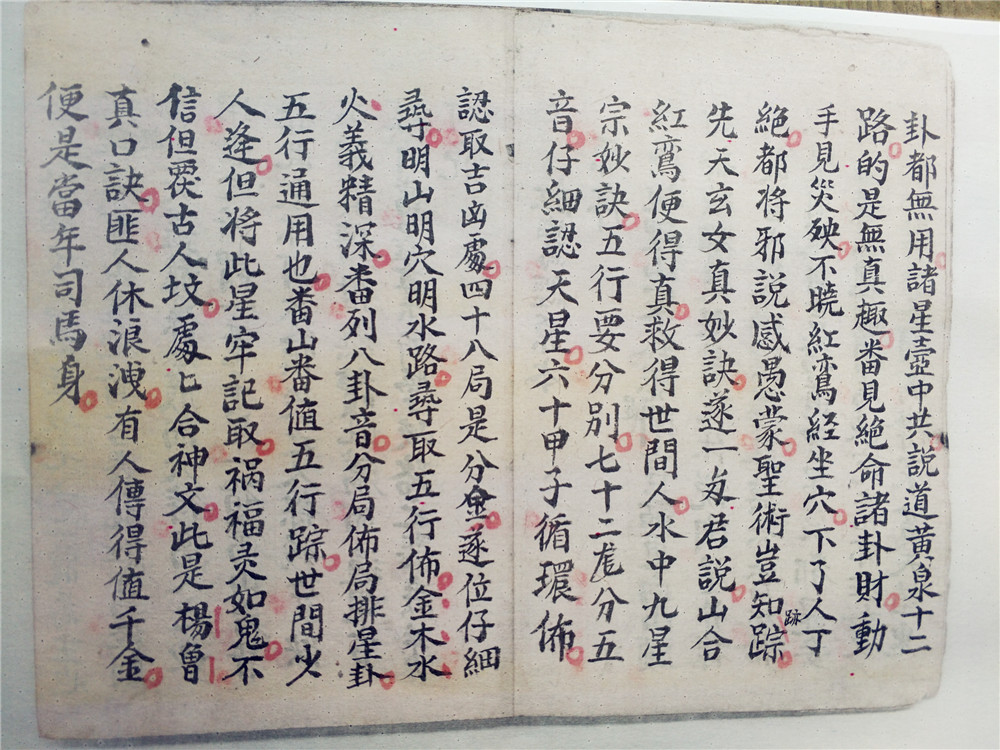 卦都無用諸星壺中共説道黄泉十二
路的是無真趣番見絶命諸卦財動
手見災殃不曉紅鸾经坐穴下了人丁
絶都将邪説感愚蒙聖術豈知踪
跡
先天玄女真妙訣遂一为君説山合
紅鸾便得真救得世間人水中九星
宗妙訣五行要分别七十二龙分五
音仔細認天星六十甲子循環佈
認取吉凶處四十八局是分金逐位仔細
尋明山明穴明水路尋取五行佈金木水
火義精深番列八卦音分局佈局排星卦
五行通用也番山番值五行踪世間少
人逢但将此星牢記取祸福灵如鬼不
信但覆古人坟處匕合神文此是楊曾
真口訣匪人休浪洩有人傳得值千金
便是當年司馬身